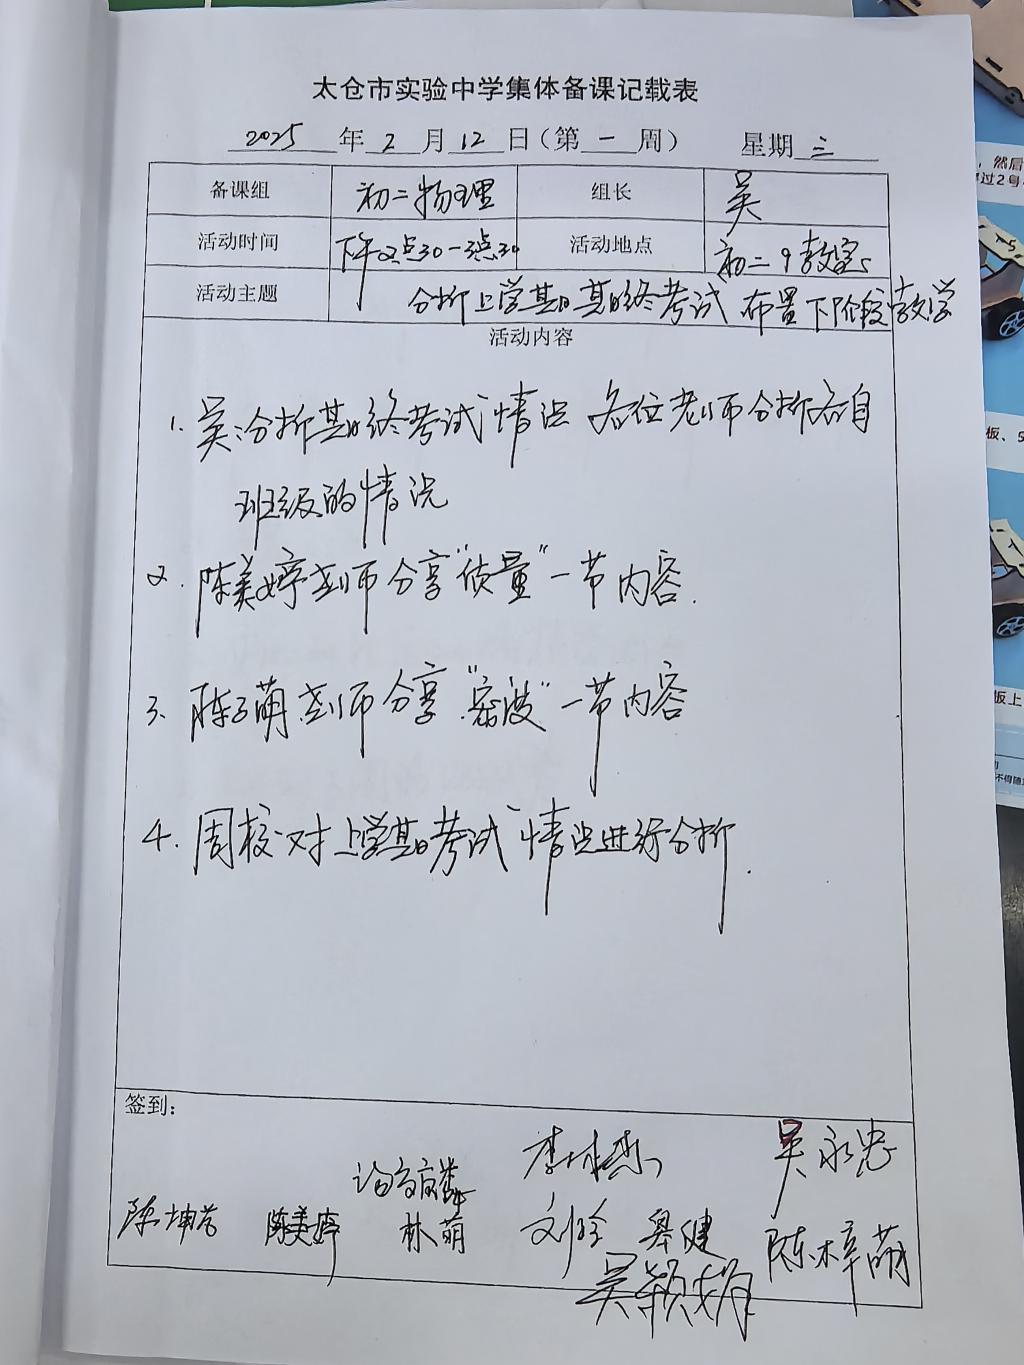 太仓市实验中学集体备课记载表
2025年2月12日(第一周) 星期三
备课组 初二物理 组长 吴
活动时间 下午2点30-3点30 活动地点 初二9教室
活动主题 分析上学期期终考试 布置下阶段教学
活动内容
1. 吴:分析期终考试情况 各位老师分析各自
班级的情况
2. 陈美婷老师分享"质量"一节内容.
3. 陈子萌老师分享"密度"一节内容
4. 周校对上学期考试情况进行分析.
签到:
吴永忠
陈美婷 林萌 健 陈梓萌
吴颖娟
,然后
过2号
板、5
板上